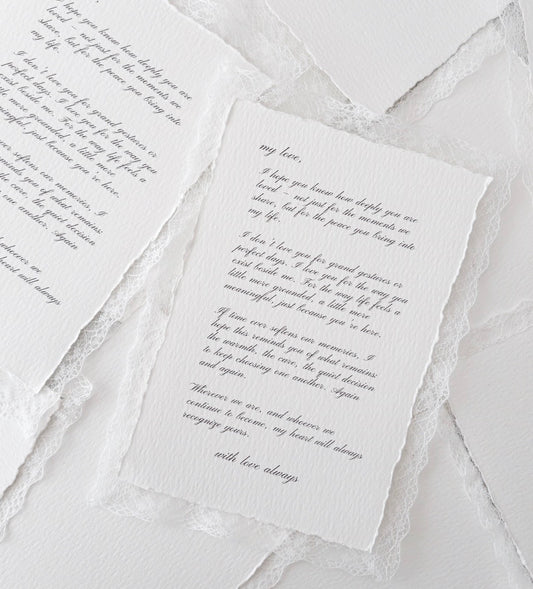 I hope you know how deeply you are
loved – not just for the moments we
share, but for the peace you bring into
my life.
I don't love you for grand gestures or
perfect days. I love you for the way you
exist beside me. For the way life feels a
little more grounded, a little more
meaningful, just because you're here.
ever softens our memories, I
reminds you of what remains:
the care, the quiet decision
one another. Again
whoever we
heart will always
my love,
I hope you know how deeply you are
loved – not just for the moments we
share, but for the peace you bring into
my life.
I don't love you for grand gestures or
perfect days. I love you for the way you
exist beside me. For the way life feels a
little more grounded, a little more
meaningful, just because you're here.
If time ever softens our memories, I
hope this reminds you of what remains:
the warmth, the care, the quiet decision
to keep choosing one another. Again
and again.
Wherever we are, and whoever we
continue to become, my heart will always
recognize yours.
with love always